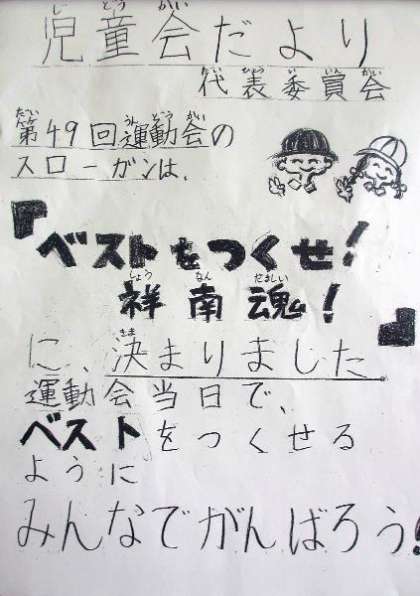 児童会だより
代表委員会
第49回運動会の
スローガンは、
『ベストをつくせ!
祥南魂!』
に、決まりました
運動会当日で、
ベストをつくせる
ように
みんなでがんばろう!